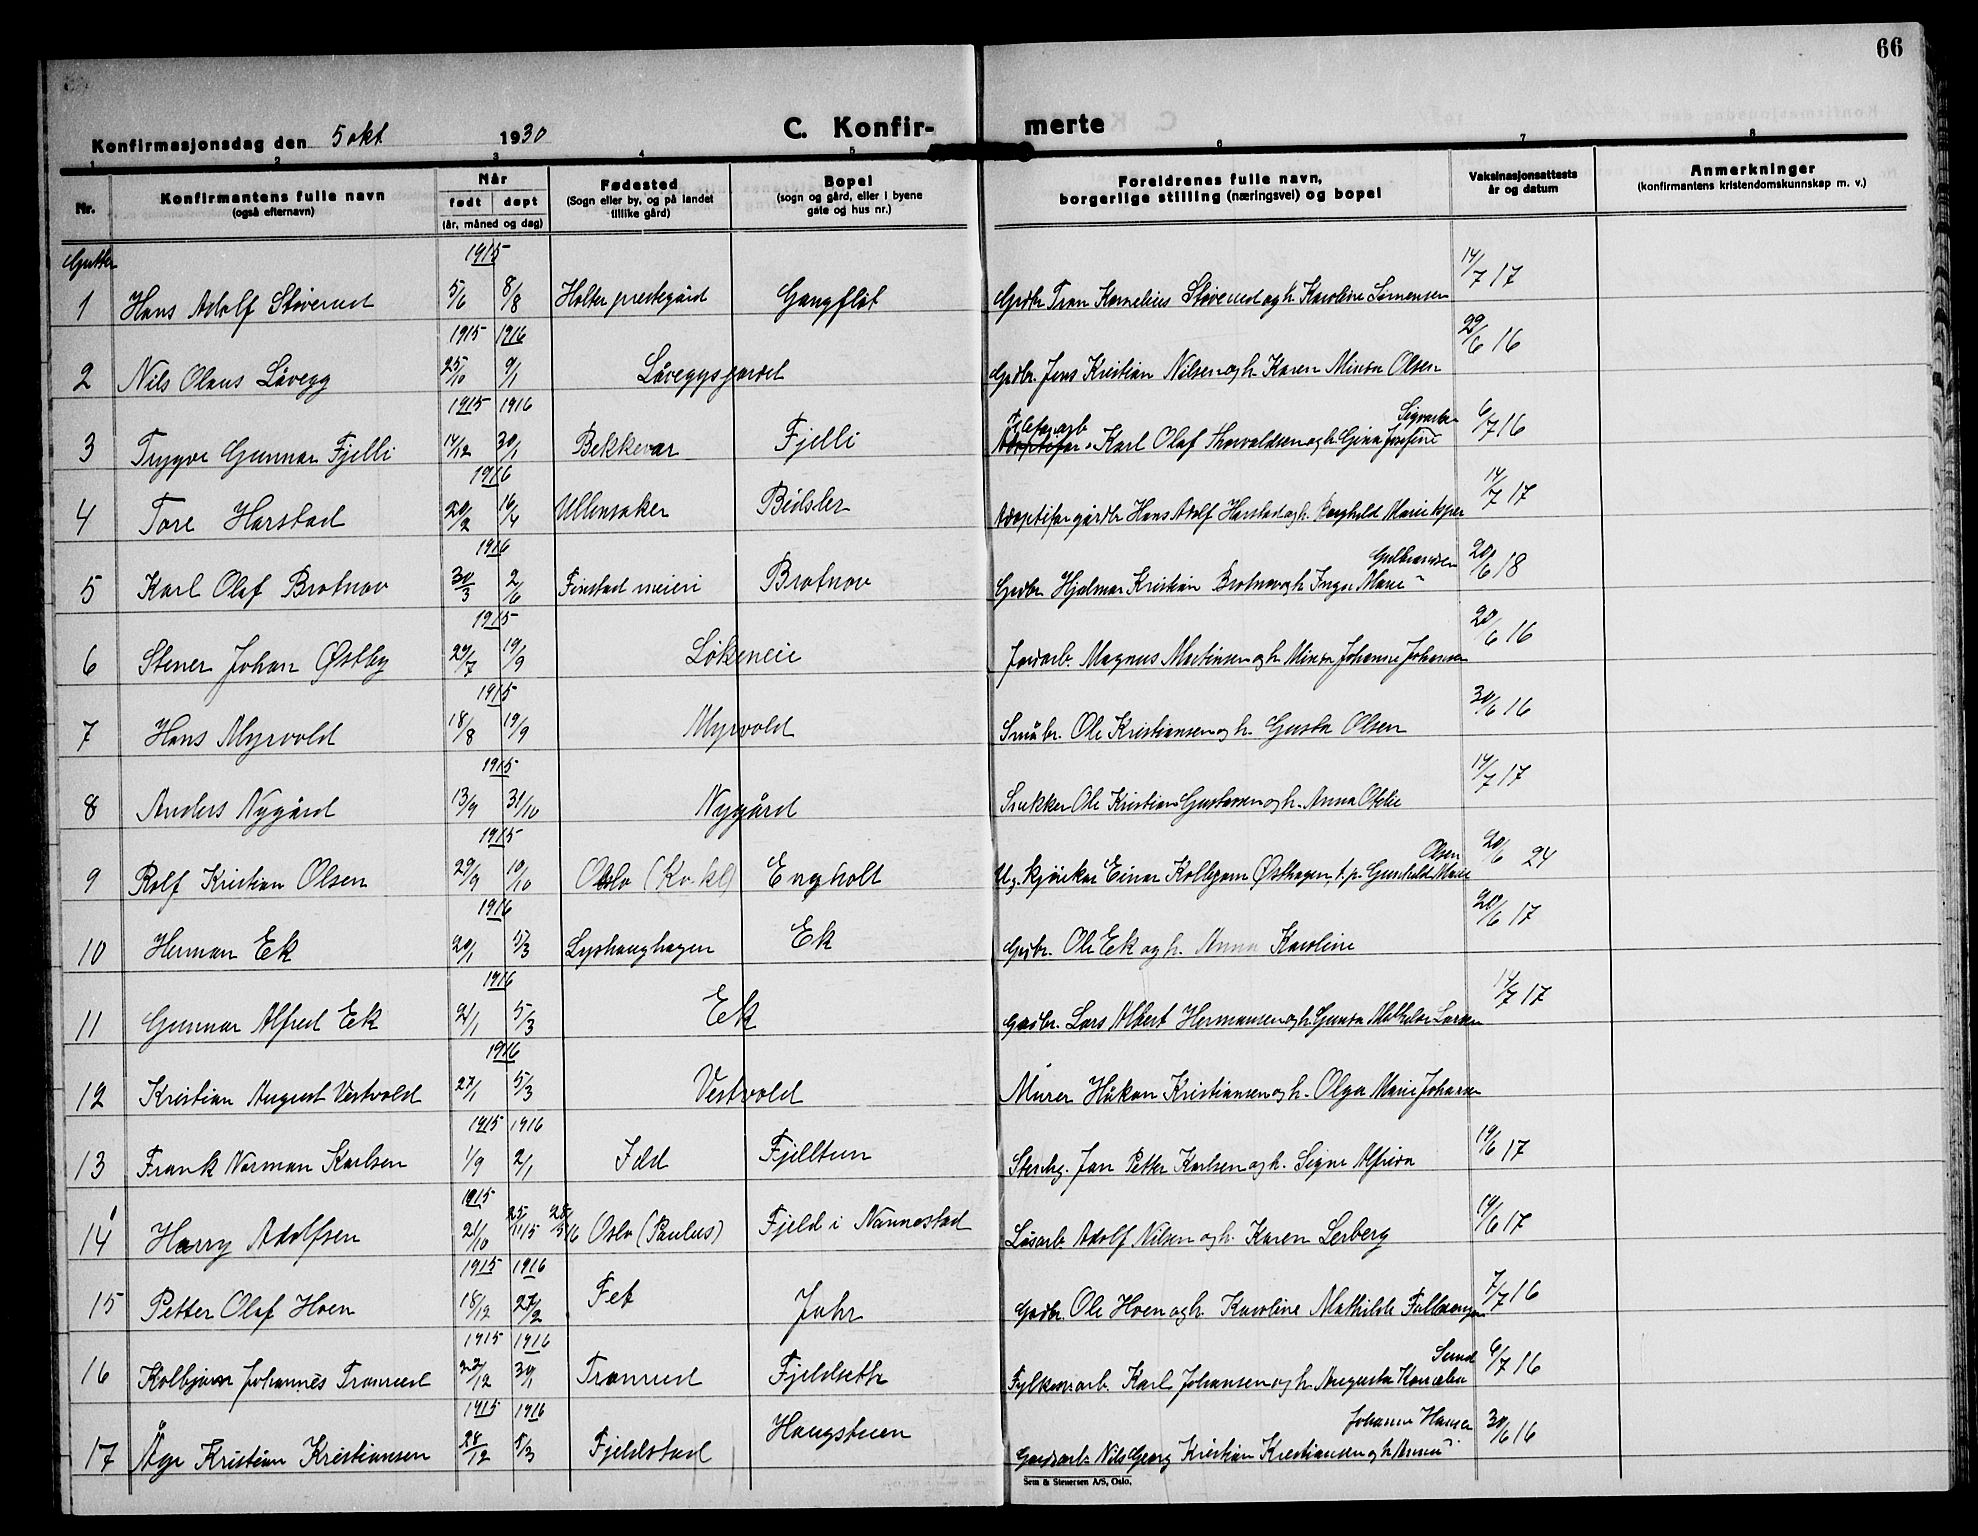 66
Konfirmasjonsdag den 5 okt. 1930 C. Konfir- merte
1 2 3 4 5 6 7 8
Nr. Konfirmantens fulle navn (også efternavn) Når født døpt (år, måned og dag) Fødested (Sogn eller by, og på landet tillike gård) Bopel (sogn og gård, eller i byene gate og hus nr.) Foreldrenes fulle navn, borgerlige stilling (næringsvei) og bopel Vaksinasjonsattests år og datum Anmerkninger (konfirmantens kristendomskunnskap m. v.)
Gutter 1915
1 Hans Adolf Støverud 5/6 8/8 Holter prestegård Gangflöt Grdbr. Kornelius Støverud og h. Karoline Sørensen 14/7 17
1915 1916
2 Nils Olaus Låvegg 25/10 9/1 Låveggsjordet Grdbr. Jens Kristian Nilsen og h. Karen Minda Olsen 29/6 16
1915 1916
3 Trygve Gunnar Fjelli 14/12 30/1 Bekkevar Fjelli Karl Olaf Thorvaldsen og h. Gina Josefine 6/7 16
1916
4 Tore Harstad 20/2 16/4 Ullensaker Bidsler Adoptifar gårdbr Hans Adolf Harstad og h. Ragnhild Marie 14/7 17
1916
5 Karl Olaf Brotnov 30/3 2/6 Finstad meieri Brotnov Grdbr. Hjalmar Kristian Brotnov og h. Inga Marie Gulbrandsen 20/6 18
1915
6 Stener Johan Østby 29/7 19/9 Løkeneie Jordarb. Magnus Martinsen og h. Minda Johanne Johansen 20/6 16
1915
7 Hans Myrvold 18/8 19/9 Myrvold Småbr. Ole Kristiansen og h. Gusta Olsen 30/6 16
1915
8 Anders Nygård 13/9 31/10 Nygård Snekker Ole Kristian Gustavsen og h. Anna Ofelie 14/7 17
1915
9 Rolf Kristian Olsen 29/9 10/10 Oslo (Kv. kl) Engholt Ug. kjørekar Einar Kolbjørn Østhagen, t.p. Gunhild Marie Olsen 20/6 24
1916
10 Herman Ek 20/1 5/3 Lyshaughagen Ek Grdbr. Ole Ek og h. Anna Karoline 20/6 17
1916
11 Gunnar Alfred Ek 21/1 5/3 Ek Gårdbr. Lars Albert Hermansen og h. Gunda Mathilde Larsen 14/7 17
1916
12 Kristian August Vestvold 27/1 5/3 Vestvold Murer Håkon Kristiansen og h. Olga Marie Johansen
1915 1916
13 Frank Norman Karlsen 1/9 2/1 Idd Fjelltun Stenhg. Jan Petter Karlsen og h. Signe Alfrida 19/6 17
1915
14 Harry Adolfsen 21/10 25/11 15 Oslo (Paulus) Fjeld i Nannestad Løsarb. Adolf Nilsen og h. Karen Lerberg 19/6 17
1915 1916
15 Petter Olaf Hoen 18/12 27/2 Fet Jahr Gårdbr. Ole Hoen og h. Karoline Mathilde 7/7 16
1915 1916
16 Kolbjørn Johannes Tranrud 22/12 30/1 Tranrud Fjeldseth Karl Johansen og h. Augusta Sund 6/7 16
1915 1916
17 Åge Kristian Kristiansen 28/12 5/3 Fjeldstad Haugstuen Gårdsarb. Nils Georg Kristian Kristiansen og h. Anna Johanne Hansen 30/6 16
Sem & Stenersen A/S, Oslo.